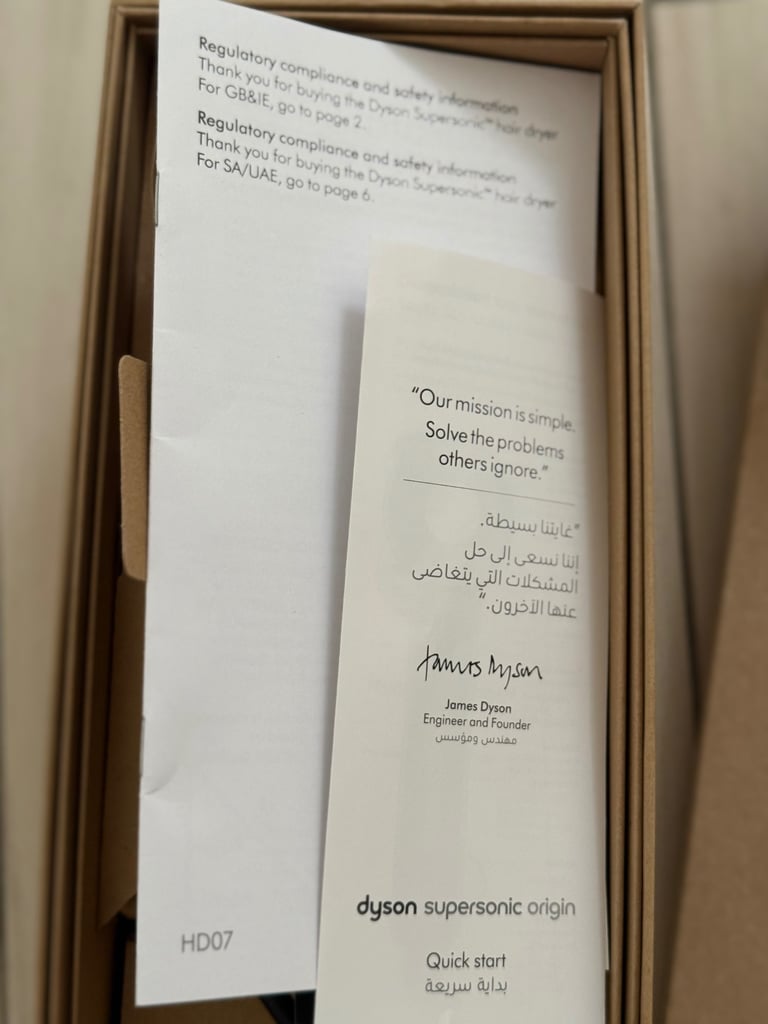 Regulatory compliance and safety information
Thank you for buying the Dyson Supersonic™ hair dryer
For GB&IE, go to page 2.
Regulatory compliance and safety information
Thank you for buying the Dyson Supersonic™ hair dryer
For SA/UAE, go to page 6.
“Our mission is simple.
Solve the problems
others ignore.”
“غايتنا بسيطة.
إننا نسعى إلى حل
المشكلات التي يتغاضى
عنها الآخرون.”
James Dyson
James Dyson
Engineer and Founder
مهندس ومؤسس
dyson supersonic origin
Quick start
بداية سريعة
HD07